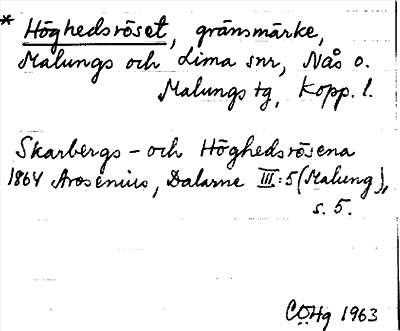 * Höghedsröset, gränsmärke,
Malungs och Lima snr, Nås o.
Malungs tg, Kopp. l.
Skarbergs - och Höghedsrösena
1864 Arosenius, Dalarne III:5 (Malung),
s. 5.
CÖHg 1963